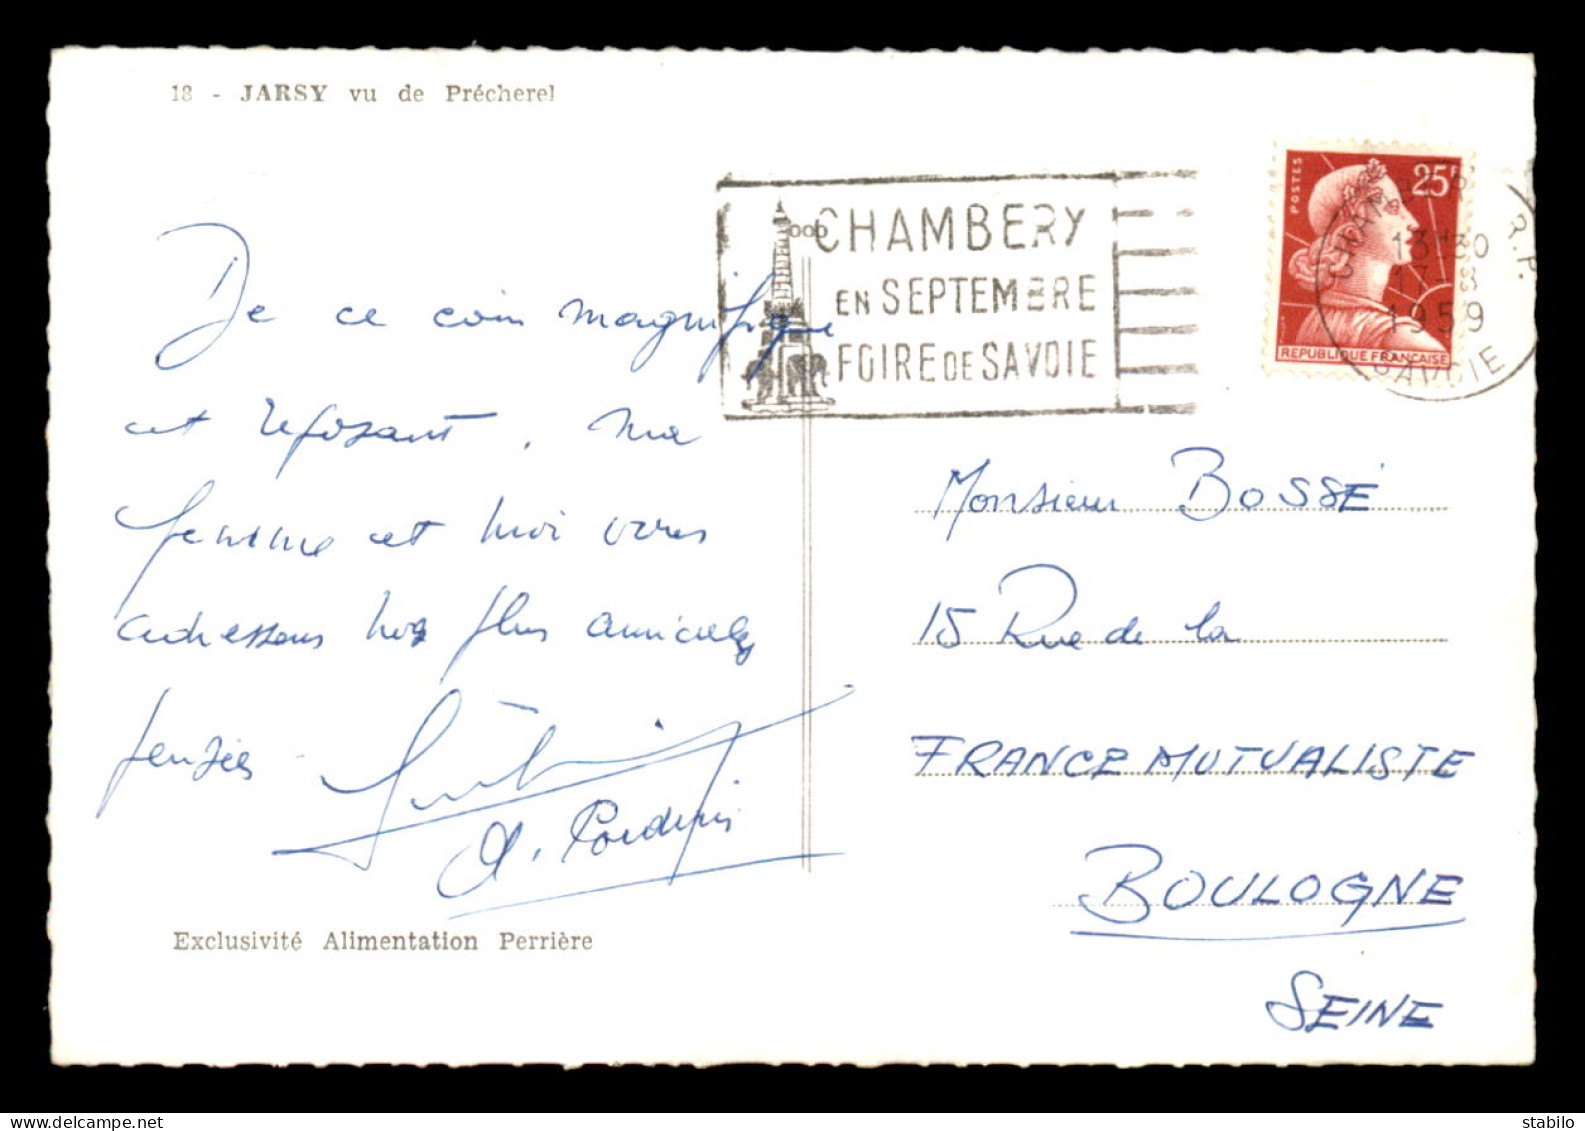 18 - JARSY vu de Précherel
De ce coin magnifique
et reposant, ma
femme et moi vous
adressons nos plus amicales
pensées.
Exclusivité Alimentation Perrière
CHAMBERY
EN SEPTEMBRE
FOIRE DE SAVOIE
POSTES
25F
REPUBLIQUE FRANÇAISE
CHAMBERY R.P.
13H30
17-8
1959
SAVOIE
Monsieur BOSSÉ
15 Rue de la
FRANCE MUTUALISTE
BOULOGNE
SEINE
delcampe.net